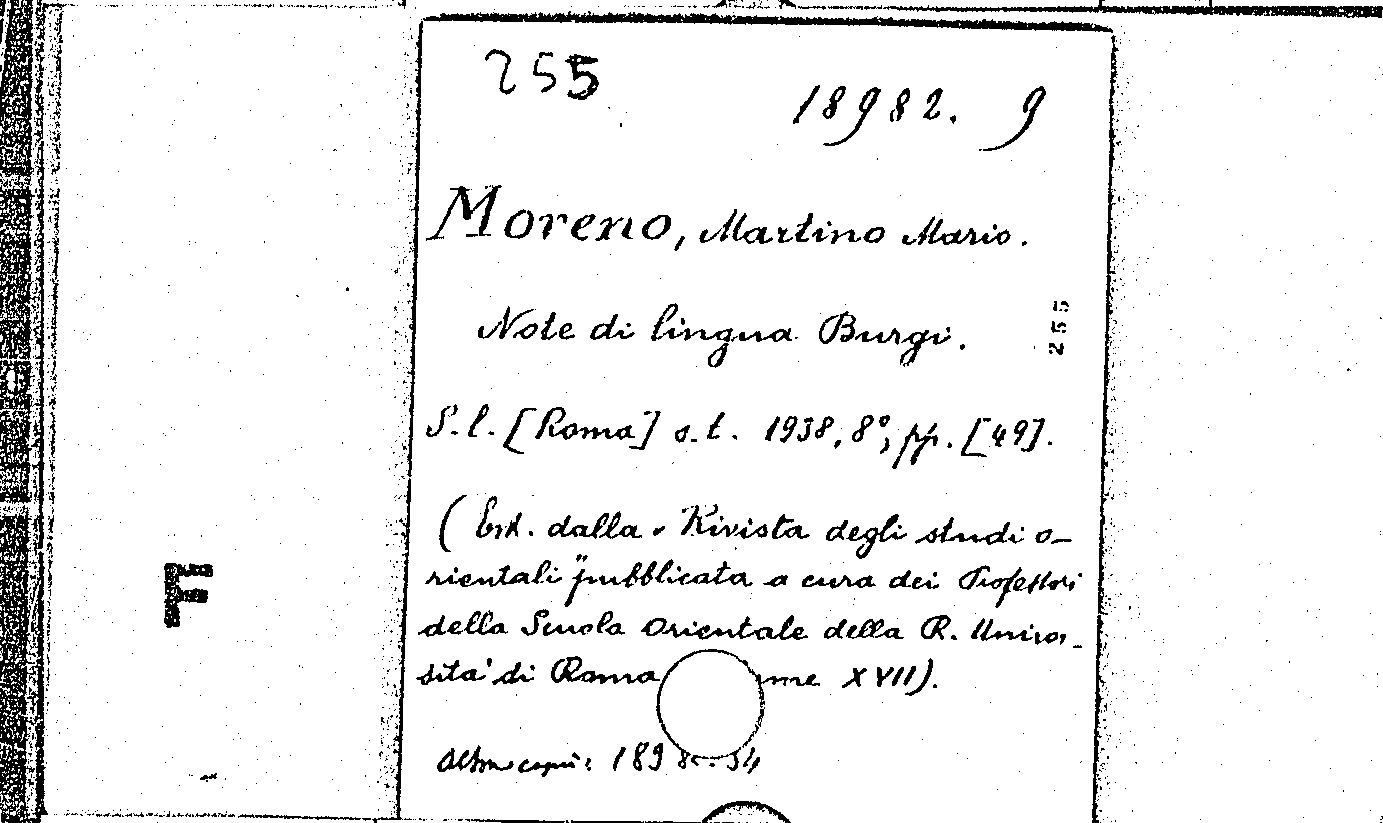 255
18982. 9
Moreno, Martino Mario.
Note di lingua Burgi.
255
S. l. [Roma] s. t. 1938, 8°, pp. [49].
(Est. dalla " Rivista degli studi o-
rientali" pubblicata a cura dei Professori
della Scuola Orientale della R. Univer-
F
sità di Roma XVII).
Altra copia: 189